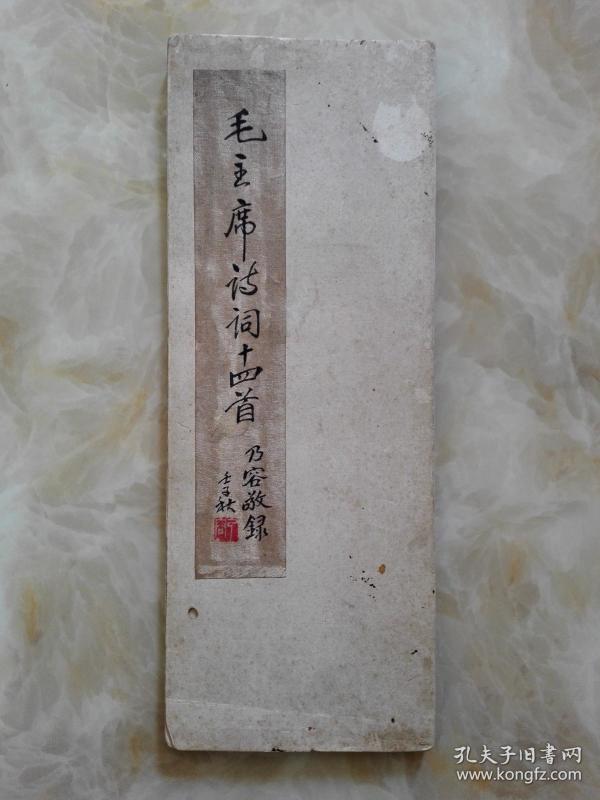 毛主席诗词十四首
乃容敬録
壬子秋
孔夫子旧书网
www.kongfz.com